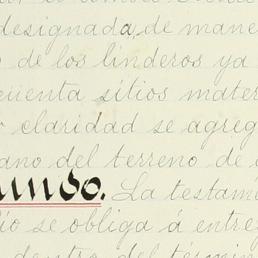 designada, de mane
de los linderos ya
cuenta sitios mater
claridad se agreg
ano del terreno de
undo. La testam
io se obliga á entre
dentro del términ